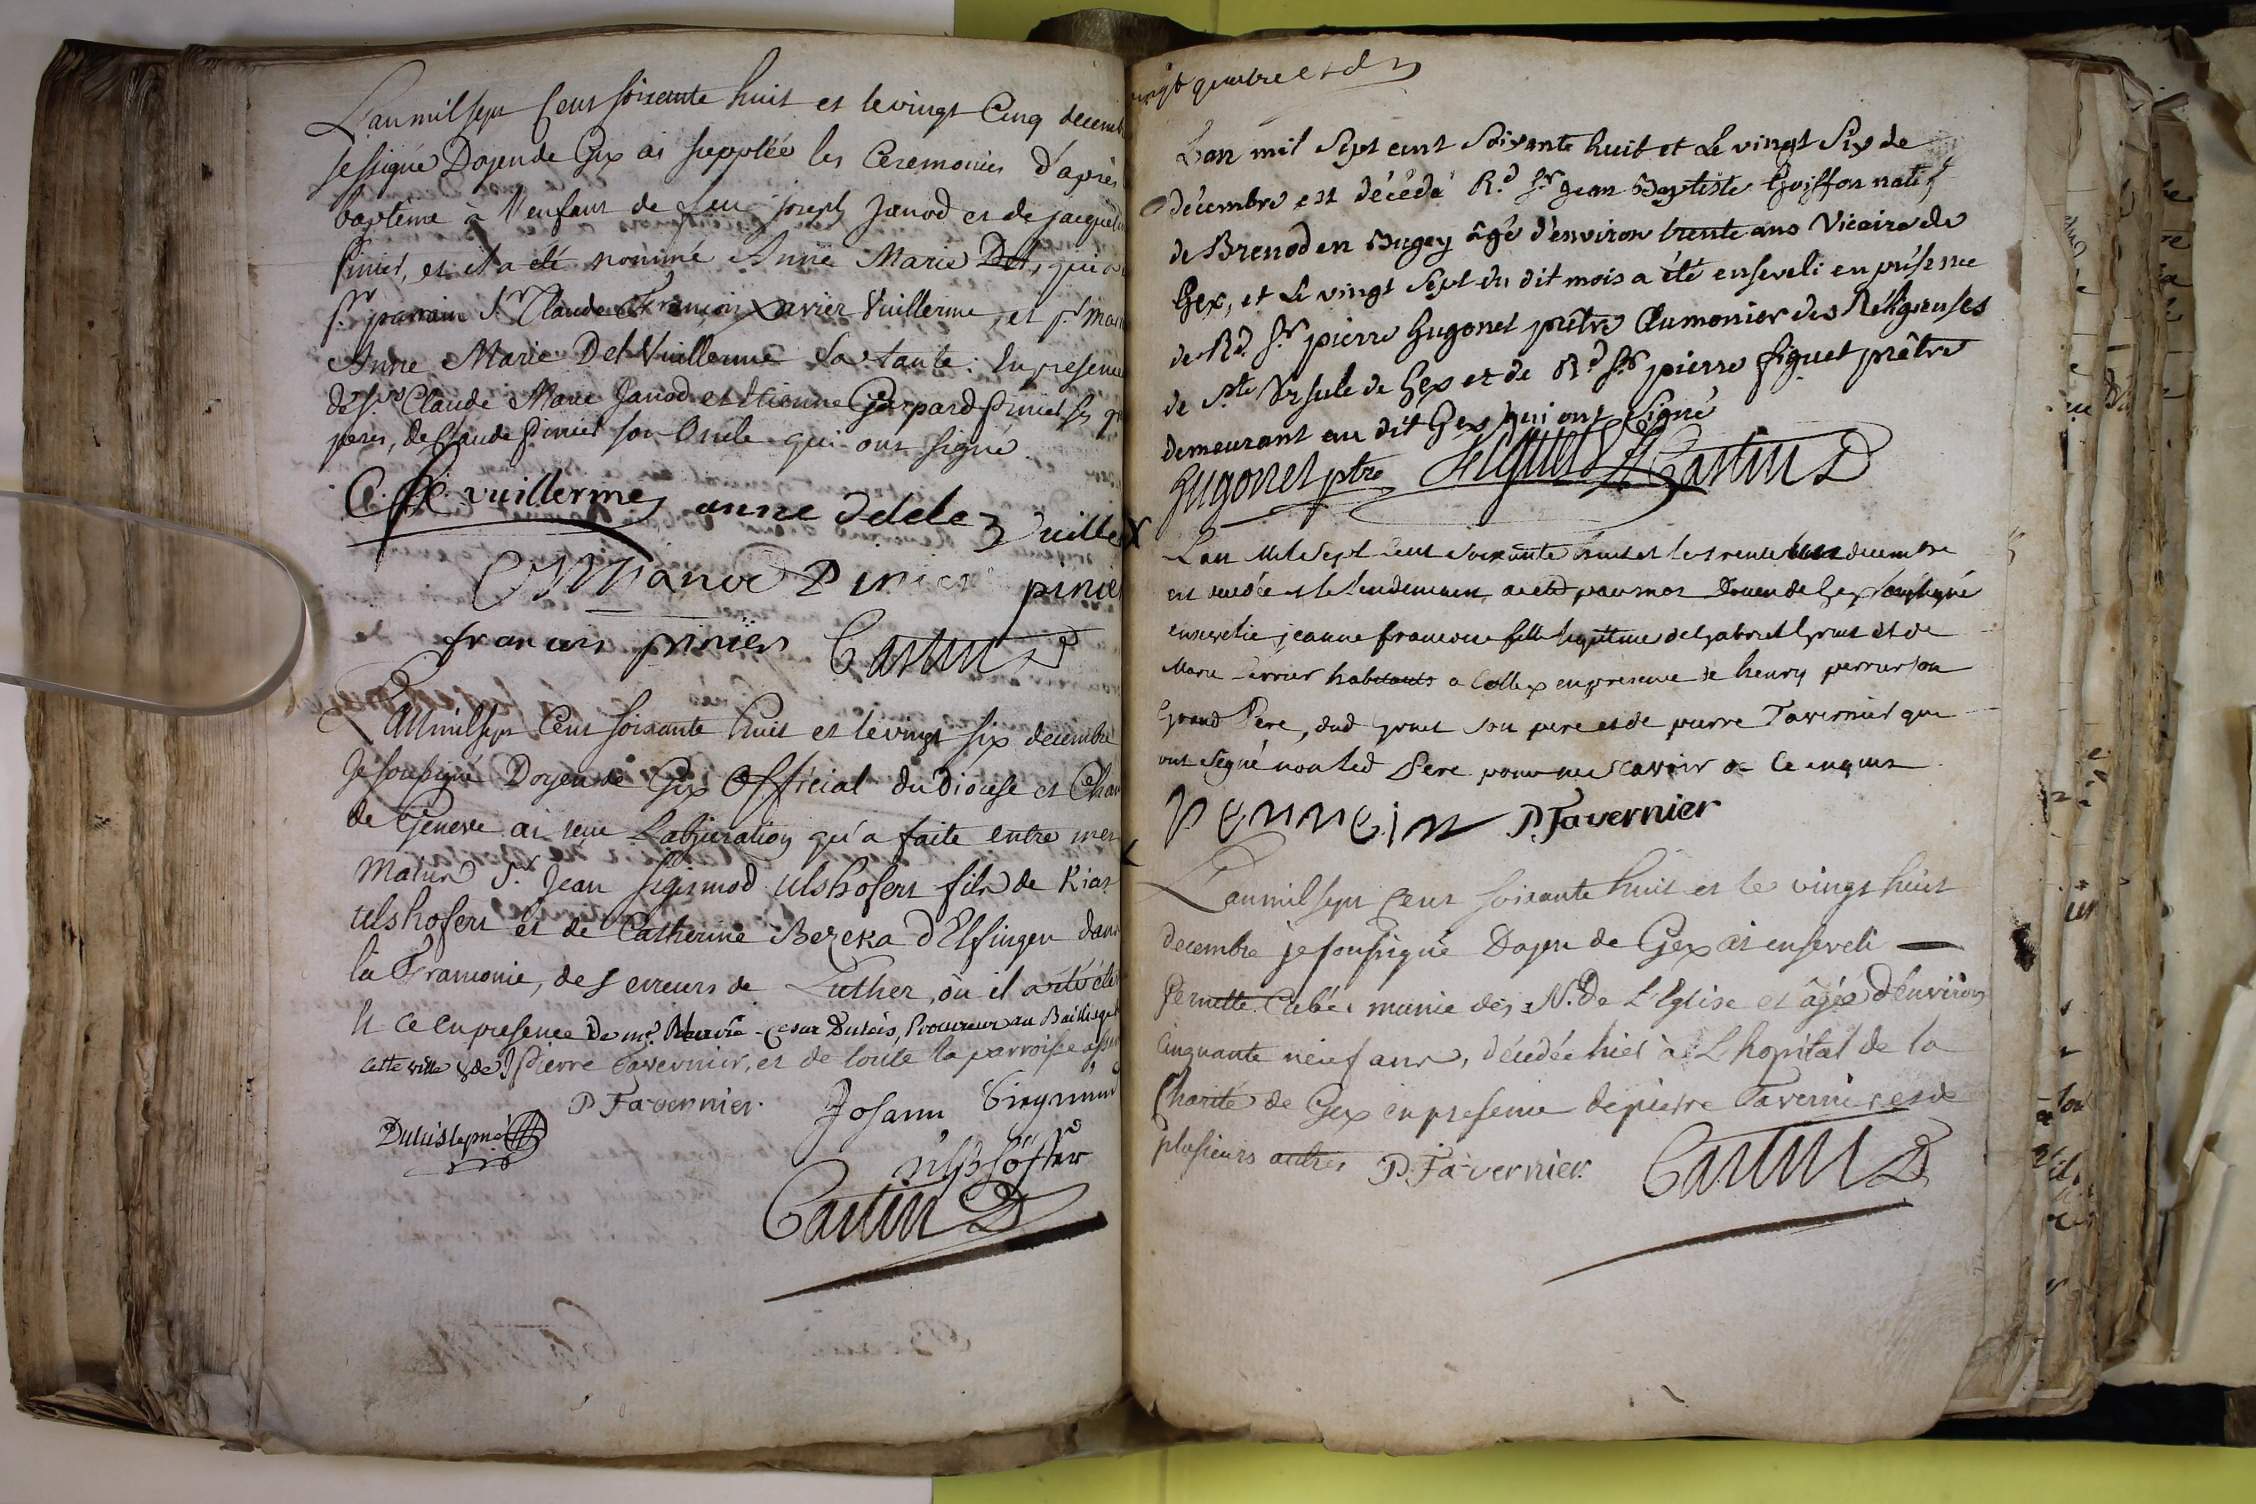 L'an mil sept Cens soixante huit et le vingt Cinq decemb
Je ssigné Doyen de Gex ai supplée les Ceremonies d'après
baptême à l'enfant de feu joseph Janod et de jacquel
Pinier, et il a été nommé Anne Marie Del, qui a
pr. parrain Sr. Claude François Xavier Vuillerme, et pr. mar
Anne Marie Del Vuillerme sa tante: En presence
de Srs Claude Marie Janod et Etienne Gaspard Pinier ses
peres, de Claude Pinier son Oncle qui ont signé.
C. vuillerme anne delele vuille
C M Janod Pinier pinie
francois pinier Castin D
L'an mil sept Cens soixante huit et le vingt six decembre
Je soussigné Doyen de Gex Official du Diocese et Chan
de Geneve ai reçu L'abjuration qu'a faite entre mes
Mains Sr. Jean Sigismod Ulshofers fils de
Ulshofers et de Catherine Bezeka d'Elfingen dans
la Franconie, des erreurs de Luther, où il a été éle
et ce en presence De mr. Cesar Dutois, Procureur au Bailliage
cette ville & de Pierre Tavernier, et de toute la parroisse
P Tavernier. Johann Sigmund
Castin D
vingt quatre
L'an mil Sept cent Soixante huit et Le vingt Six de
décembre est décédé Rd. Sr. jean Baptiste Goiffon natif
de Brenod en Bugey âgé d'environ trente ans Vicaire de
Gex, et Le vingt Sept du dit mois a été enseveli en présence
de Rd. Sr. pierre hugonet prêtre Aumonier des Réligieuses
de Ste Ursule de Gex et de Rd Sr pierre figuet prêtre
demeurant au dit Gex qui ont Signé
hugonet ptre figuet Castin D
L'an Mil Sept Cent Soixante huit et le trente decembre
est decédée et le lendemain a eté par moi Doyen de Gex soussigné
ensevelie jeanne francoise fille legitime de Gabriel Gruet et de
Marie Perrier habitants a Collex en presence de henry perrier son
Grand Pere, dud gruet son pere et de pierre Tavernier qui
ont Signé non led Pere pour ne scavoir de ce enquis
P. Tavernier
L'an mil sept Cens soixante huit et le vingt huit
decembre je soussigné Doyen de Gex ai enseveli
Pernette munie des S. de L'Eglise et âgée d'environ
Cinquante neuf ans, décédée hier à L'hopital de la
Charité de Gex en presence de pierre Tavernier et de
plusieurs autres P. Tavernier. Castin D